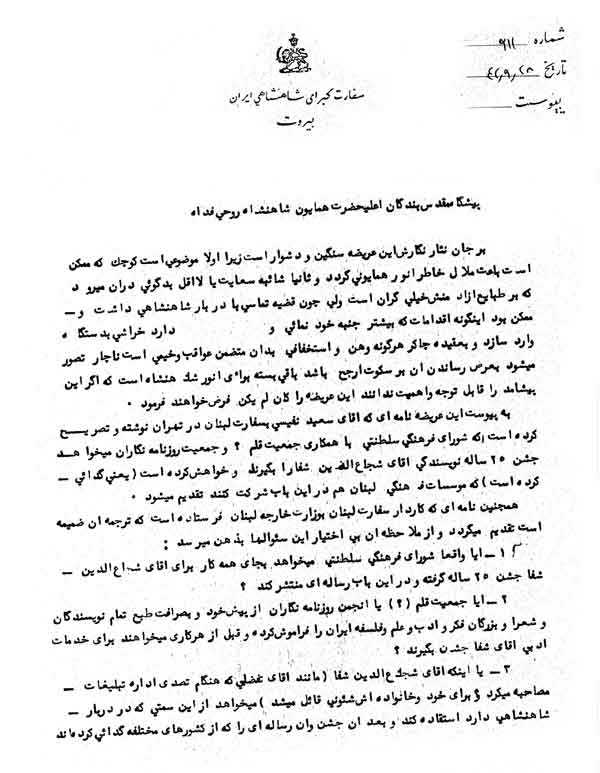 شماره ۹۱۱
تاریخ ۴۲،۹،۲۸
پیوست
سفارت کبرای شاهنشاهی ایران
بیروت
پیشگاه مقدس بندگان اعلیحضرت همایون شاهنشاه روحی فداه
برجان نثار نگارش این عریضه سنگین و دشوار است زیرا اولا موضوعی است کوچك که ممکن
است باعث ملال خاطر انور همایونی گردد و ثانیا شائبه سعایت یا لااقل بدگوئی دران میرود
که بر طبایع ازاد منش خیلی گران است ولی چون قضیه تماسی با دربار شاهنشاهی داشت و ــ
ممکن بود اینگونه اقدامات که بیشتر جنبه خود نمائی و دارد خراشی بدستگاه
وارد سازد و بعقیده چاکر هرگونه وهن و استخفافی بدان متضمن عواقب وخیمی است ناچار تصور
میشود بعرض رساندن ان بر سکوت ارجح باشد باقی بسته برای انور شاهنشاه است که اگر این
پیشامد را قابل توجه واهمیت ندانند این عریضه را کان لم یکن فرض خواهند فرمود .
به پیوست این عریضه نامه ای که اقای سعید نفیسی بسفارت لبنان در تهران نوشته و تصریح
کرده است که شورای فرهنگی سلطنتی با همکاری جمعیت قلم ؟ و جمعیت روزنامه نگاران میخواهد
جشن ۲۵ ساله نویسندگی اقای شجاع الدین شفارا بگیرند و خواهش کرده است ( یعنی گدائی ــ
کرده است ) که موسسات فرهنگی لبنان هم در این باب شرکت کنند تقدیم میشود .
همچنین نامه ای که کاردار سفارت لبنان بوزارت خارجه لبنان فرستاده است که ترجمه ان ضمیمه
است تقدیم میگردد و از ملاحظه ان بی اختیار این سئوالها بذهن میرسد :
۱ ــ ایا واقعا شورای فرهنگی سلطنتی میخواهد بجای همه کار برای اقای شجاع الدین ــ
شفا جشن ۲۵ ساله گرفته و در این باب رساله ای منتشر کند ؟
۲ ــ ایا جمعیت قلم (؟) یا انجمن روزنامه نگاران از پیش خود و بصرافت طبع تمام نویسندگان
و شعرا و بزرگان فکر و ادب و علم وفلسفه ایران را فراموش کرده و قبل از هرکاری میخواهند برای خدمات
ادبی اقای شفا جشن بگیرند ؟
۳ ــ یا اینکه اقای شجاع الدین شفا ( مانند اقای فضلی که هنگام تصدی اداره تبلیغات ــ
مصاحبه میکرد و برای خود وخانواده اش شئونی قائل میشد ) میخواهد از این سمتی که در دربار ــ
شاهنشاهی دارد استفاده کند و بعد ان جشن وان رساله ای را که از کشورهای مختلفه گدائی کرده اند